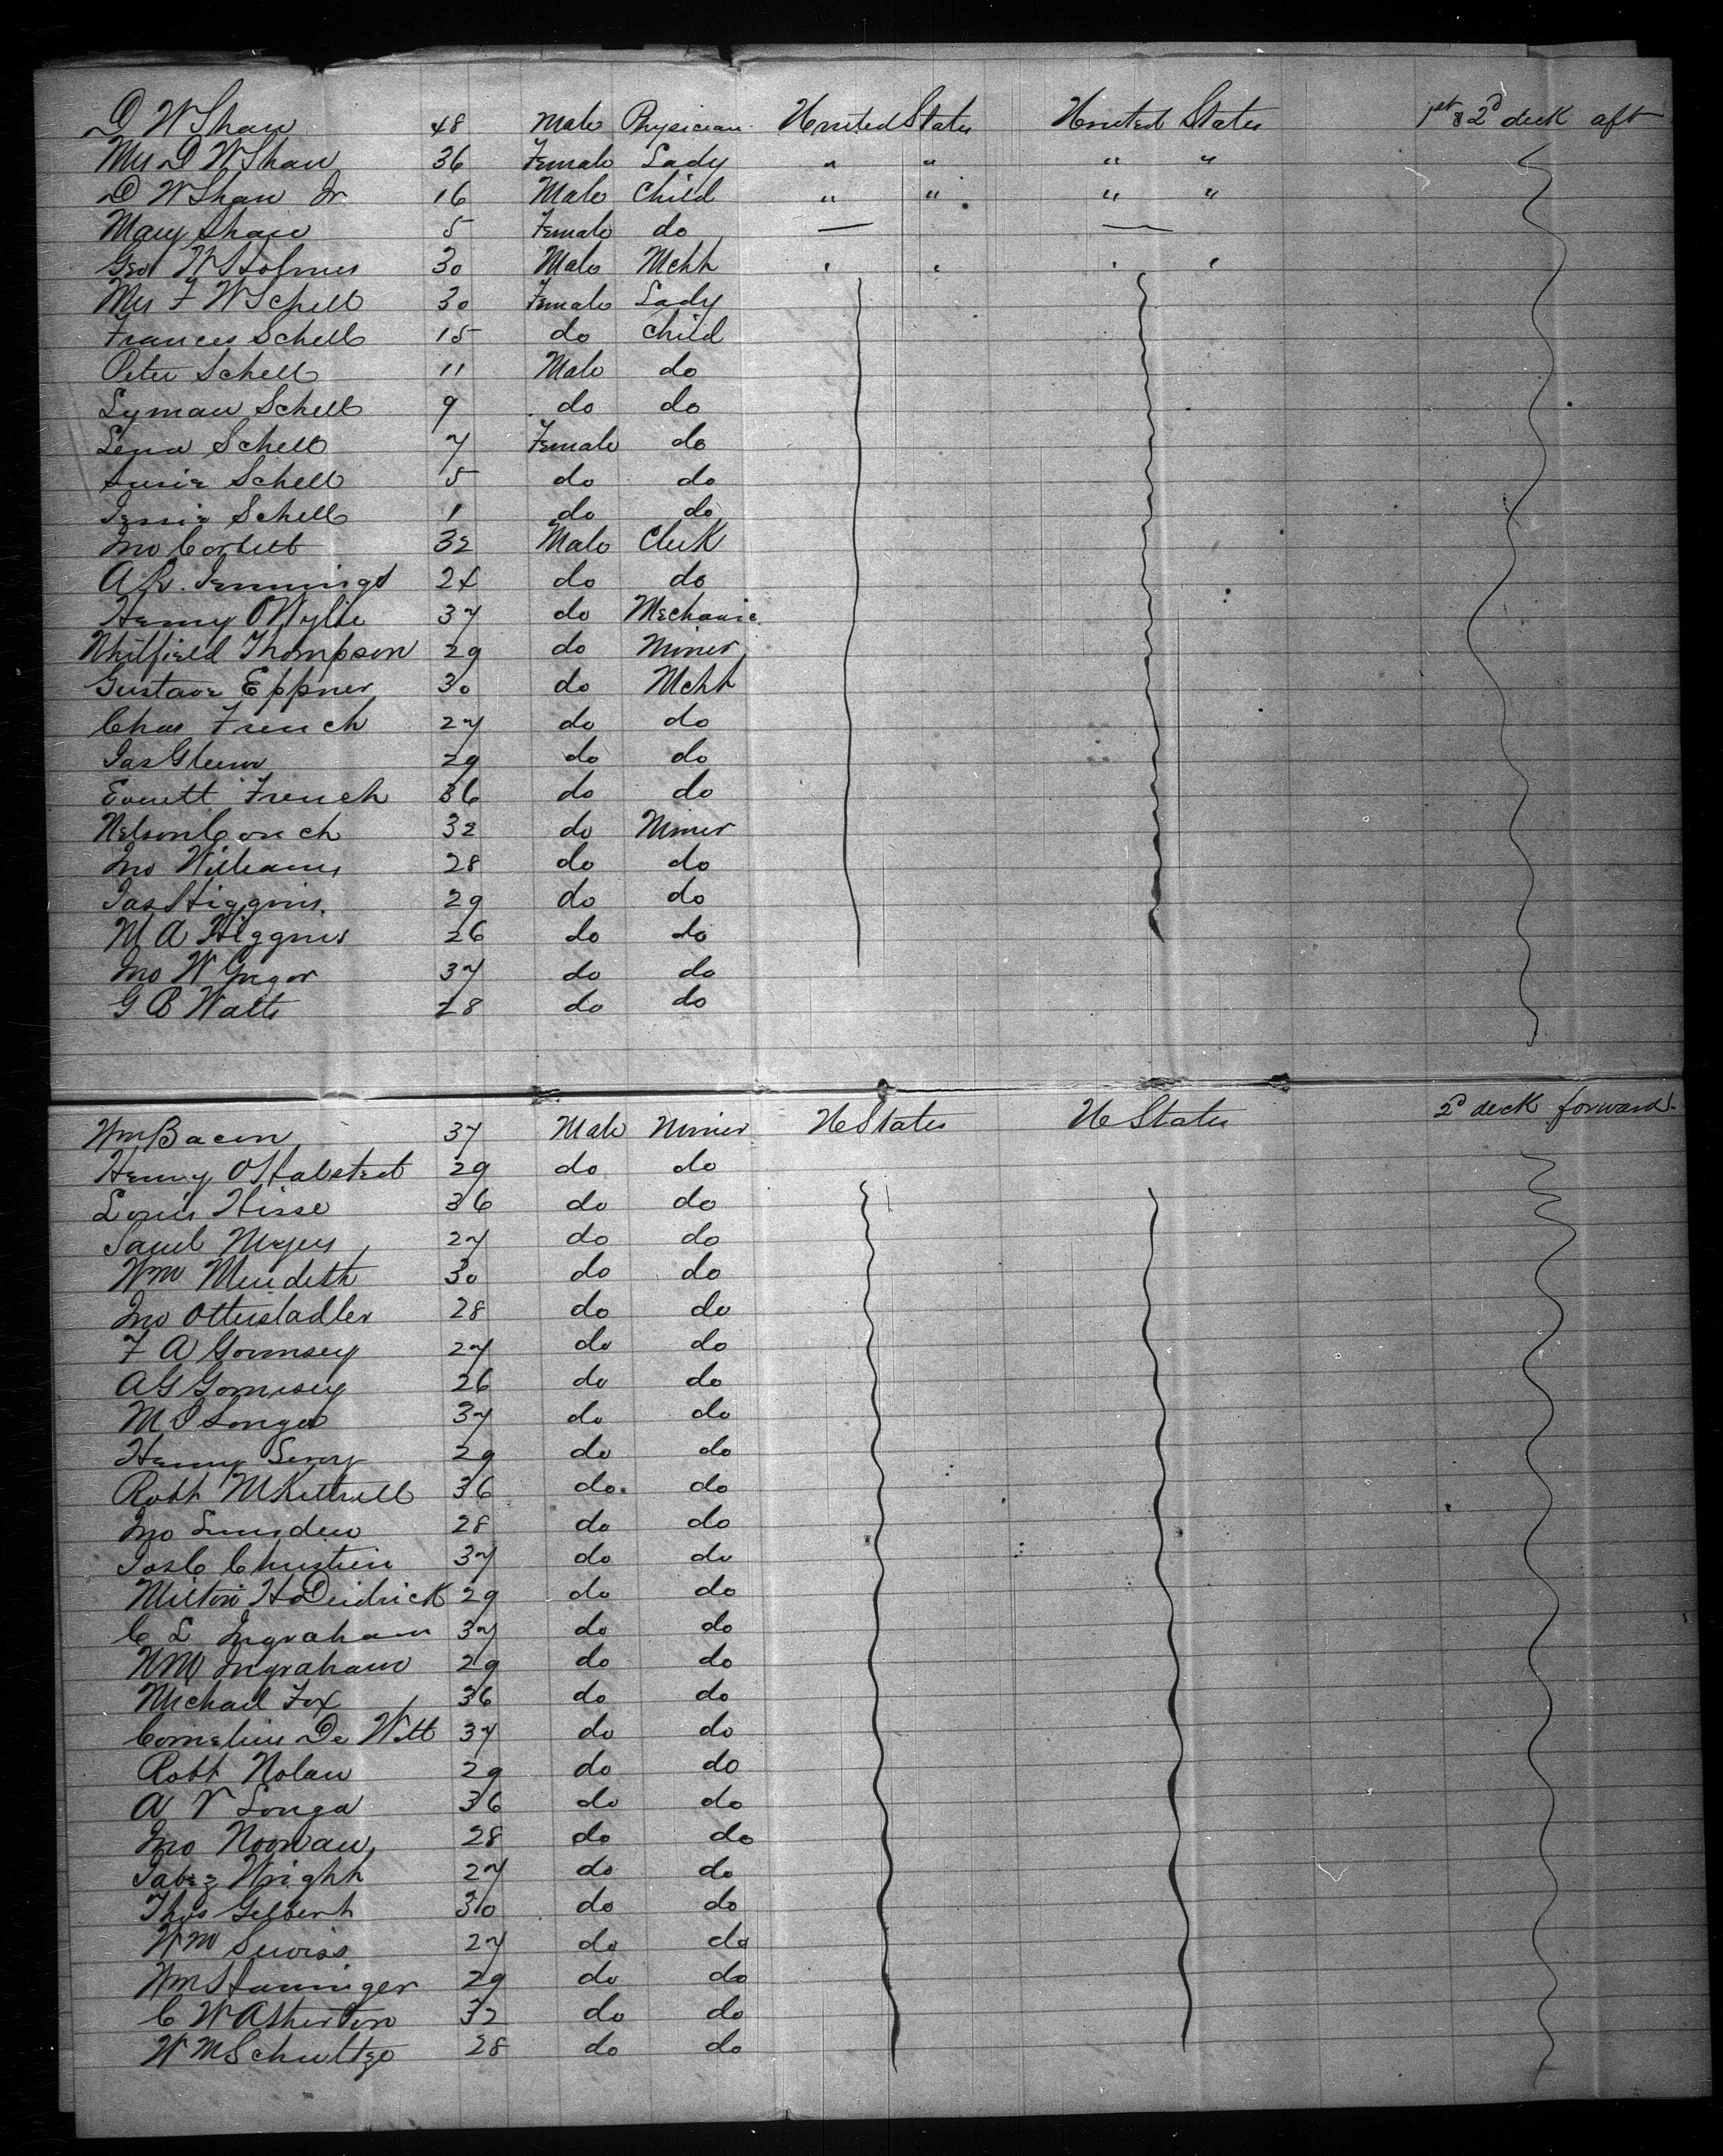 D W Shaw 48 Male Physician United States United States 1st & 2d deck aft
Mrs D W Shaw 36 Female Lady " " " "
D W Shaw Jr 16 Male Child " " " "
Mary Shaw 5 Female do — —
Geo W Holmes 30 Male Mcht " " " "
Mrs F W Schell 30 Female Lady
Frances Schell 15 do Child
Peter Schell 11 Male do
Lyman Schell 9 do do
Lena Schell 7 Female do
Susie Schell 5 do do
Jessie Schell 1 do do
Jno Corbett 32 Male Clerk
A R. Jennings 24 do do
Henry O Wylie 37 do Mechanic
Whitfield Thompson 29 do Miner
Gustave Eppner 30 do Mcht
Chas French 27 do do
Jas Glenn 29 do do
Everett French 36 do do
Nelson Couch 32 do Miner
Jno Williams 28 do do
Jas Higgins 29 do do
M A Higgins 26 do do
Jno W Gregor 37 do do
G B Watts 28 do do
Wm Bacon 37 Male Miner U States U States 2d deck forward
Henry O Halsted 29 do do
Louis Hisse 36 do do
Saml Meyers 27 do do
Wm Meredith 30 do do
Jno Ottenstadler 28 do do
F A Gormsey 27 do do
A G Gormsey 26 do do
M S Longa 37 do do
Henry 29 do do
Robt McKittrell 36 do do
Jno Lumsden 28 do do
Jas C Christien 37 do do
Milton H Deidrick 29 do do
C L Ingraham 37 do do
Wm Ingraham 29 do do
Michael Fox 36 do do
Cornelius De Witt 37 do do
Robt Nolan 29 do do
A V Longa 36 do do
Jno Noonan 28 do do
Jabez Wright 27 do do
Thos Gilbert 30 do do
Wm 27 do do
Wm Hanninger 29 do do
C W Atherton 32 do do
W M Schultze 28 do do